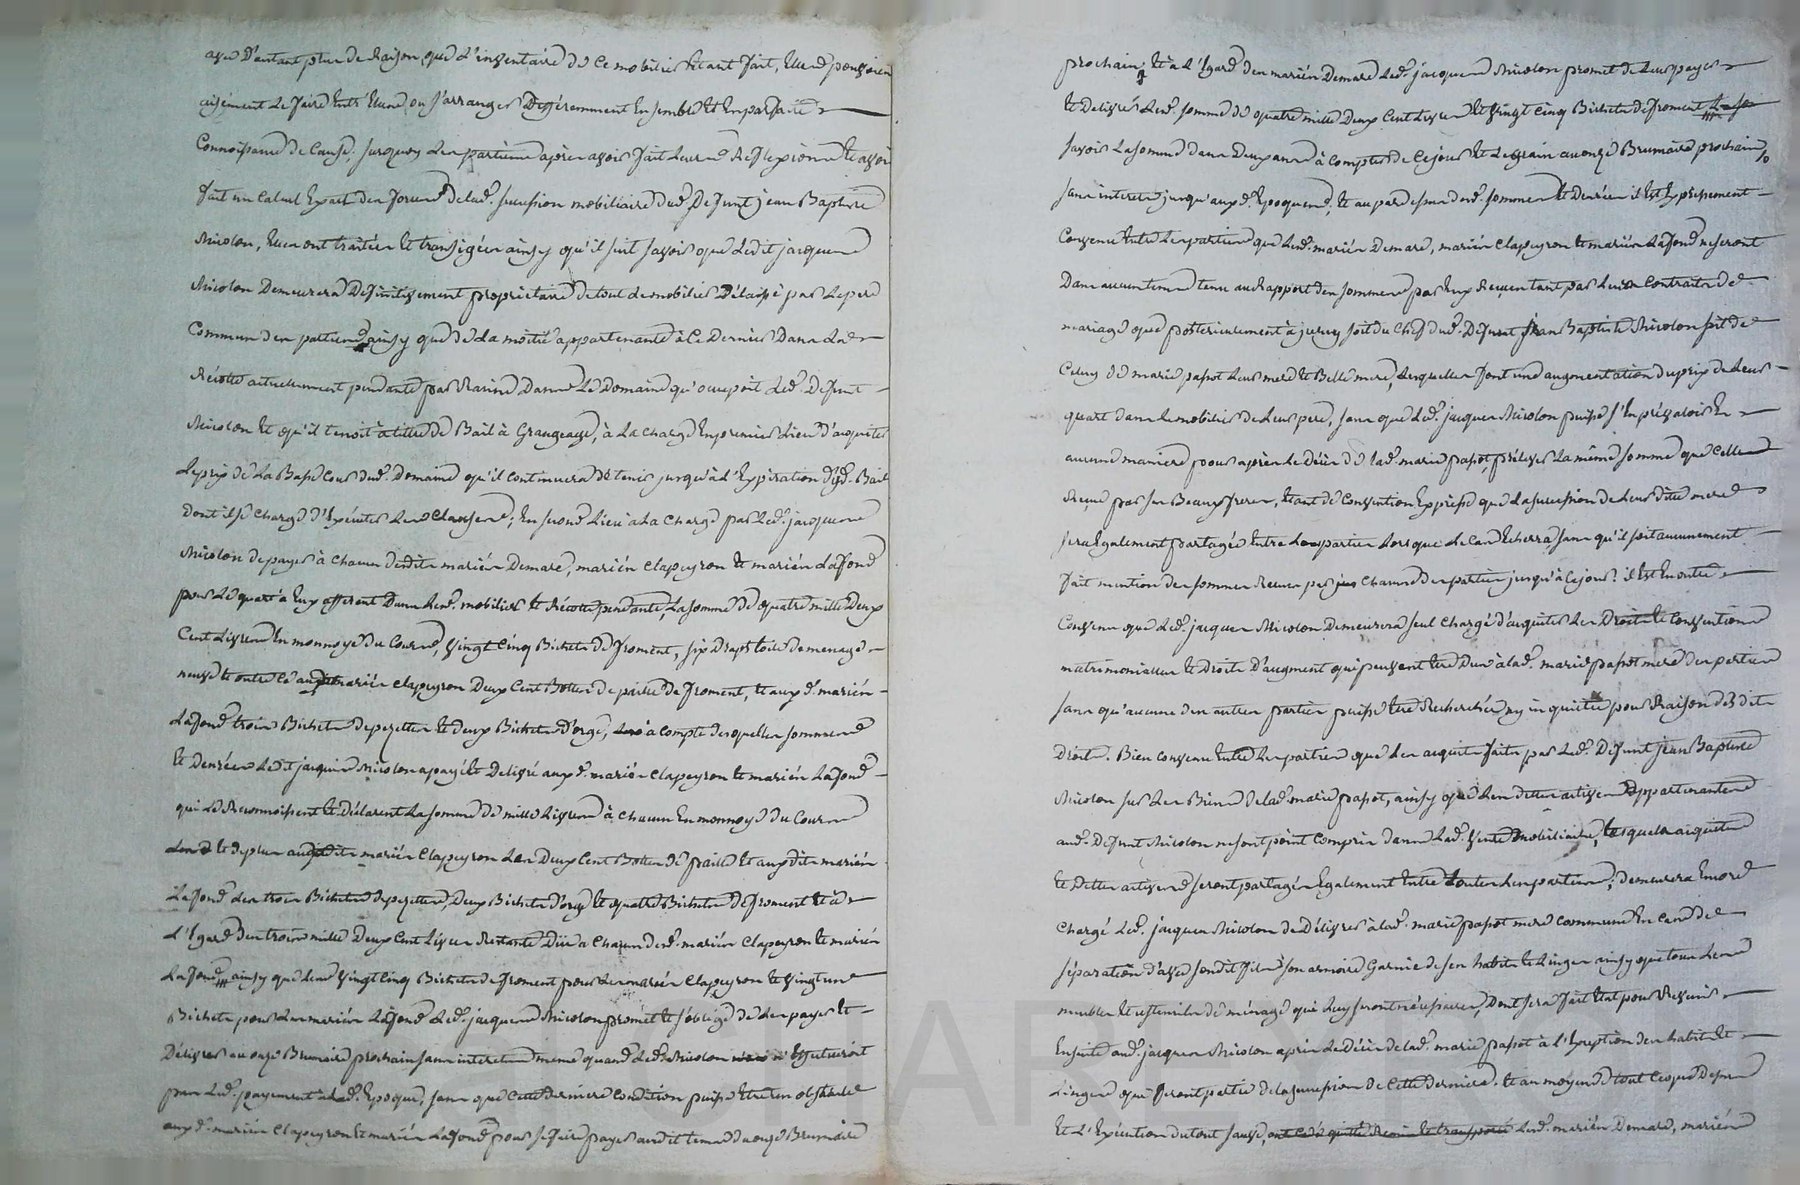 avec d'autant plus de Raison que L'inventaire de ce mobilier étant fait, Elles pouvoient
aisément Le faire entr'Elles ou s'arranger Differemment Ensemble et En parfaite
Connoissance de Cause, surquoy Les parties après avoir fait Leurs Reflexions et avoir
fait un Calcul Exact des forces de lad. succession mobiliaire dud. Defunt jean Baptiste
Micolon, Elles ont traitées et transigées ainsy qu'il suit savoir que Ledit jacques
Micolon Demeurera Definitivement proprietaire de tout Le mobilier Délaissé par Le pere
Commun des parties ainsy que de La moitié appartenante à Ce Dernier Dans La
Récolte actuellement pendante par Racine Dans Le Domaine qu'occupoit Led. Defunt
Micolon et qu'il tenoit à titre de Bail à Grangeage, à La charge En premier Lieu d'acquitter
Le prix de La Basse Cour dud. Domaine qu'il continuera de tenir jusqu'à L'Expiration dud. Bail
dont il se charge d'Exécuter Les Clauses; En second Lieu à La charge par Led. jacques
Micolon de payer à chacun desdits mariés Demare, mariés Clapeyron et mariés Lafond
pour Le quart à Eux afferent Dans Led. mobilier et Récolte pendante, La somme de quatre mille Deux
Cent Livres En monnoye du Cours, vingt Cinq Bichets de froment, six Draps toile de menage
neuve et outre ce aux mariés Clapeyron Deux Cent Bottes de paille de froment, et aux d. mariés
Lafond trois Bichets de pezettes et deux Bichets D'orge, à compte desquelles sommes
et denrées Ledit jacques Micolon a payé et Delivré aux d. mariés Clapeyron et mariés Lafond
qui Le Reconnoissent et Déclarent La somme de mille Livres à chacun En monnoye du Cours
et de plus auxdits mariés Clapeyron Les Deux Cent Bottes de paille et auxdits mariés
Lafond Les trois Bichets de pezettes, Deux Bichets d'orge et quatre Bichets de froment et à
L'Egard des trois mille Deux Cent Livres Restante Düe à chacun desd. mariés Clapeyron et mariés
Lafond, ainsy que Les vingt Cinq Bichets de froment pour Les mariés Clapeyron et vingt un
Bichets pour Les mariés Lafond Led. jacques Micolon promet et s'oblige de Les payer et
Délivrer au onze Brumaire prochain sans interets même quand Led. Micolon n'Effectueroit
pas Led. payement à lad. Epoque, sans que Cette derniere Condition puisse Etre un obstacle
aux d. mariés Clapeyron et mariés Lafond pour se faire payer audit terme du onze Brumaire
prochain; Et à L'Egard des mariés Demare Led. jacques Micolon promet de Leur payer
et Delivrer Lad. somme de quatre mille Deux Cent Livres et vingt Cinq Bichets de froment
savoir La somme dans Deux ans à compter de Ce jour et Le grain au onze Brumaire prochain
sans interets jusqu'aux d. Epoques, Et au par dessus desd. sommes et Denrées il Est Expressement
Convenu Entre Les parties que Lesd. mariés Demare, mariés Clapeyron et mariés Lafond ne seront
Dans aucun tems tenus au Rapport des sommes par Eux Reçues tant par Leurs Contrats de
mariage que posterieurement à jceux, soit du Chef dud. Defunt jean Baptiste Micolon soit de
Celuy de marie papot Leur mere et Belle mere, Lesquelles font une augmentation du prix de Leur
quart dans Le mobilier de Leur pere, sans que Led. jacques Micolon puisse s'En prévaloir En
aucune maniere pour après Le Décès de lad. marie papot, préléver La même somme que Celle
Reçue par ses Beaux freres, Etant de Convention Expresse que La succession de Leur dite mere
sera Egalement partagée Entre Les parties Lorsque Le Cas Echerra sans qu'il soit aucunement
fait mention des sommes Reçues par Chacune des parties jusqu'à Ce jour: il Est En outre
Convenu que Led. jacques Micolon Demeurera seul Chargé d'acquitter Les Droits et Conventions
matrimoniaux et Droits D'augment qui peuvent Etre Dus à lad. marie papot mere des parties
sans qu'aucune des autres parties puisse Etre Recherchée ny inquietée pour Raison desdits
Droits. Bien Convenu Entre Les parties que Les acquits faits par Led. Defunt jean Baptiste
Micolon sur Les Biens de lad. marie papot, ainsy que Les dettes actives appartenantes
aud. Defunt Micolon ne sont point Compris dans Lad. vente mobiliaire, Lesquels acquits
et Dettes actives seront partagés Egalement Entre toutes Les parties; demeurera Encore
Chargé Led. jacques Micolon de Délivrer à lad. marie papot mere Commune En Cas de
séparation d'avec sondit fils son armoire Garnie de ses habits et Linges ainsy que tous Les
meubles et ustensiles de ménage qui Luy seront nécessaires, Dont sera fait Etat pour Revenir
Ensuite aud. jacques Micolon après Le Décès de lad. marie papot à L'Exception des habits et
Linges qui feront partie de La succession de Cette derniere. Et au moyen de tout Ce que Dessus
Et L'Exécution du tout sauve, Lesd. mariés Demare, mariés